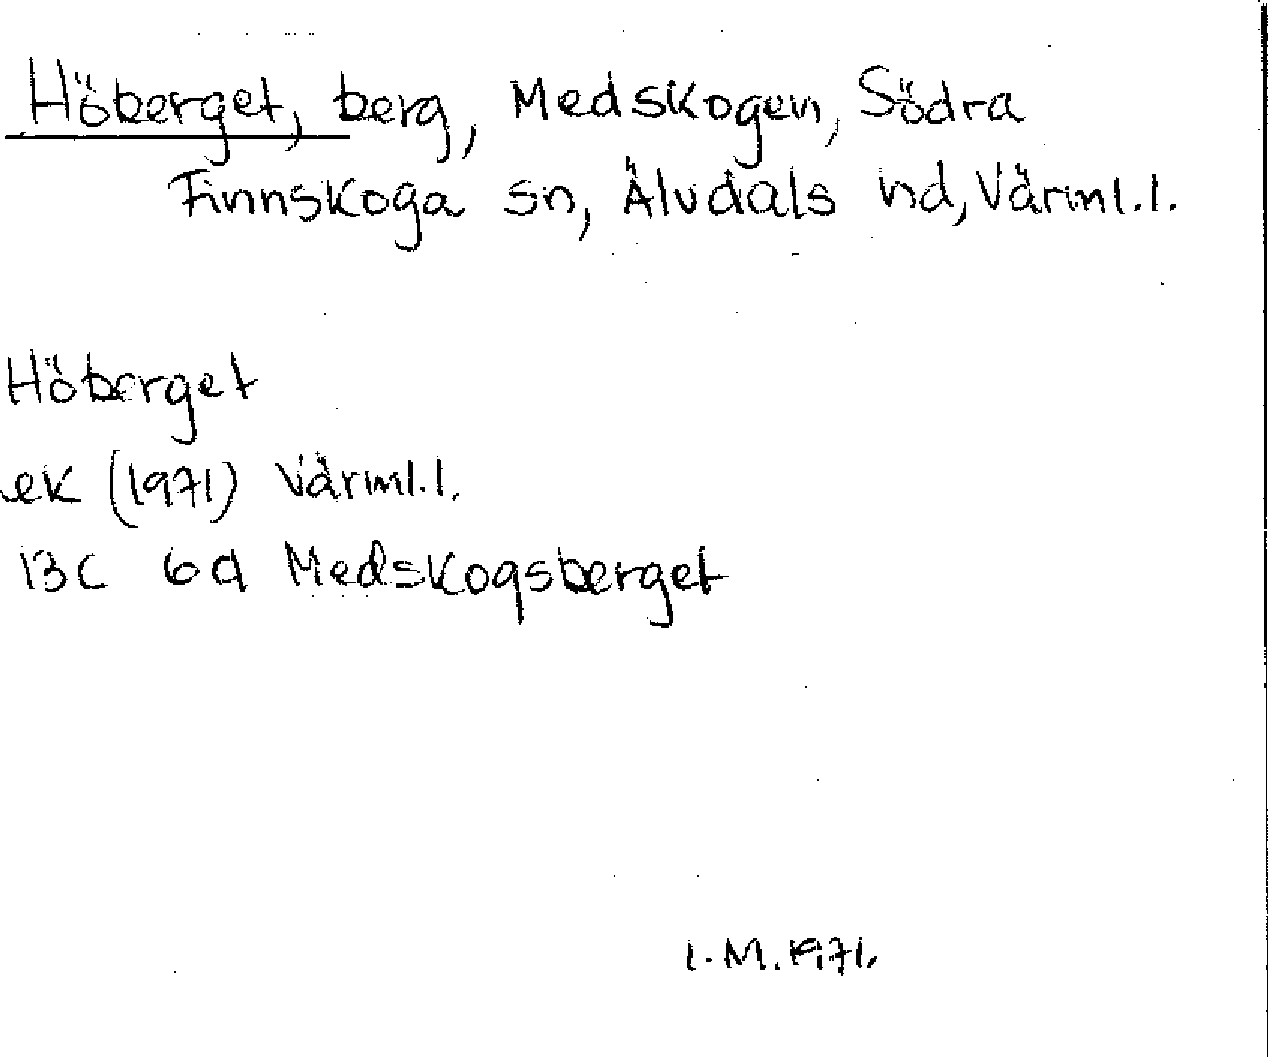 Höberget, berg, Medskogen, Södra
Finnskoga sn, Älvdals hd, Värml.l.
Höberget
ek (1971) Värml.l.
13C 6d Medskogsberget
I.M.1971.